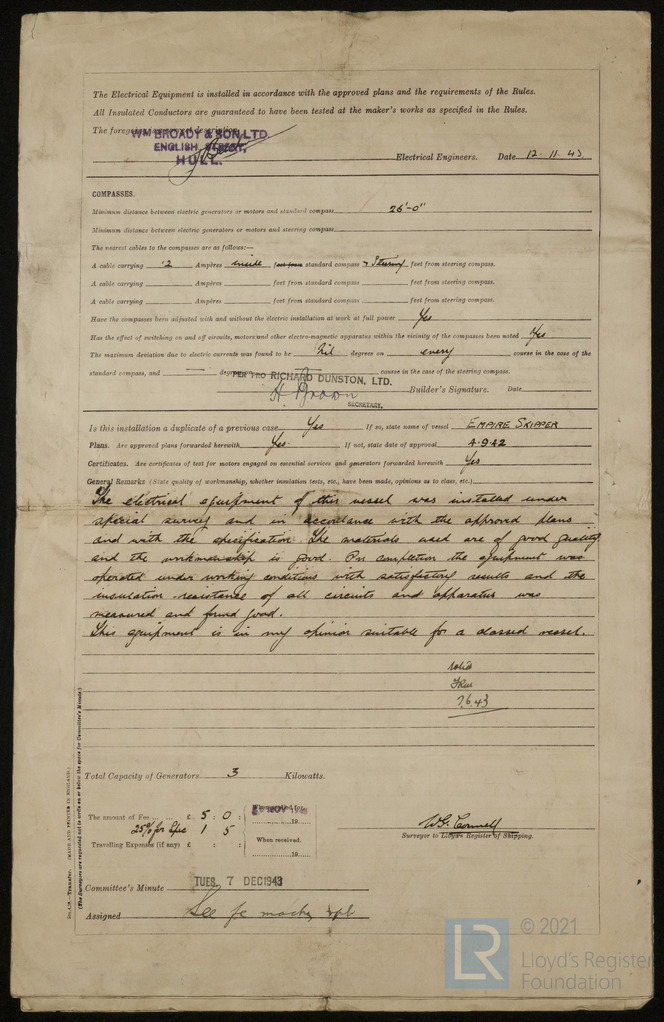 The Electrical Equipment is installed in accordance with the approved plans and the requirements of the Rules.
All Insulated Conductors are guaranteed to have been tested at the maker's works as specified in the Rules.
The foregoing is a correct description.
WM BROADY & SON, LTD.
ENGLISH STREET,
HULL.
Electrical Engineers. Date 12-11-43.
COMPASSES.
Minimum distance between electric generators or motors and standard compass 26'-0"
Minimum distance between electric generators or motors and steering compass
The nearest cables to the compasses are as follows:—
A cable carrying .2 Ampères inside feet from standard compass & Steering feet from steering compass.
A cable carrying Ampères feet from standard compass feet from steering compass.
A cable carrying Ampères feet from standard compass feet from steering compass.
Have the compasses been adjusted with and without the electric installation at work at full power Yes
Has the effect of switching on and off circuits, motors and other electro-magnetic apparatus within the vicinity of the compasses been noted Yes
The maximum deviation due to electric currents was found to be Nil degrees on every course in the case of the
standard compass, and — degrees on course in the case of the steering compass.
PER PRO RICHARD DUNSTON, LTD.
H. Brown Builder's Signature. Date
SECRETARY.
Is this installation a duplicate of a previous case Yes If so, state name of vessel EMPIRE SKIPPER
Plans. Are approved plans forwarded herewith Yes. If not, state date of approval 4.9.42
Certificates. Are certificates of test for motors engaged on essential services and generators forwarded herewith Yes
General Remarks (State quality of workmanship, whether insulation tests, etc., have been made, opinions as to class, etc.)
The electrical equipment of this vessel was installed under
special survey and in accordance with the approved plans
and with the specification. The materials used are of good quality
and the workmanship is good. On completion the equipment was
operated under working conditions with satisfactory results and the
insulation resistance of all circuits and apparatus was
measured and found good.
This equipment is in my opinion suitable for a classed vessel.
Noted
7.6.43
Total Capacity of Generators 3 Kilowatts.
The amount of Fee ... £ 5 : 0 :
25% for 1 5
Travelling Expenses (if any) £ : :
NOV 19
When received.
19
Surveyor to Lloyd's Register of Shipping.
Committee's Minute TUES. 7 DEC 1943
Assigned See
Transfer. (MADE AND PRINTED IN ENGLAND.)
(The Surveyors are requested not to write on or below the space for Committee's Minute.)
LR
© 2021
Lloyd's Register
Foundation